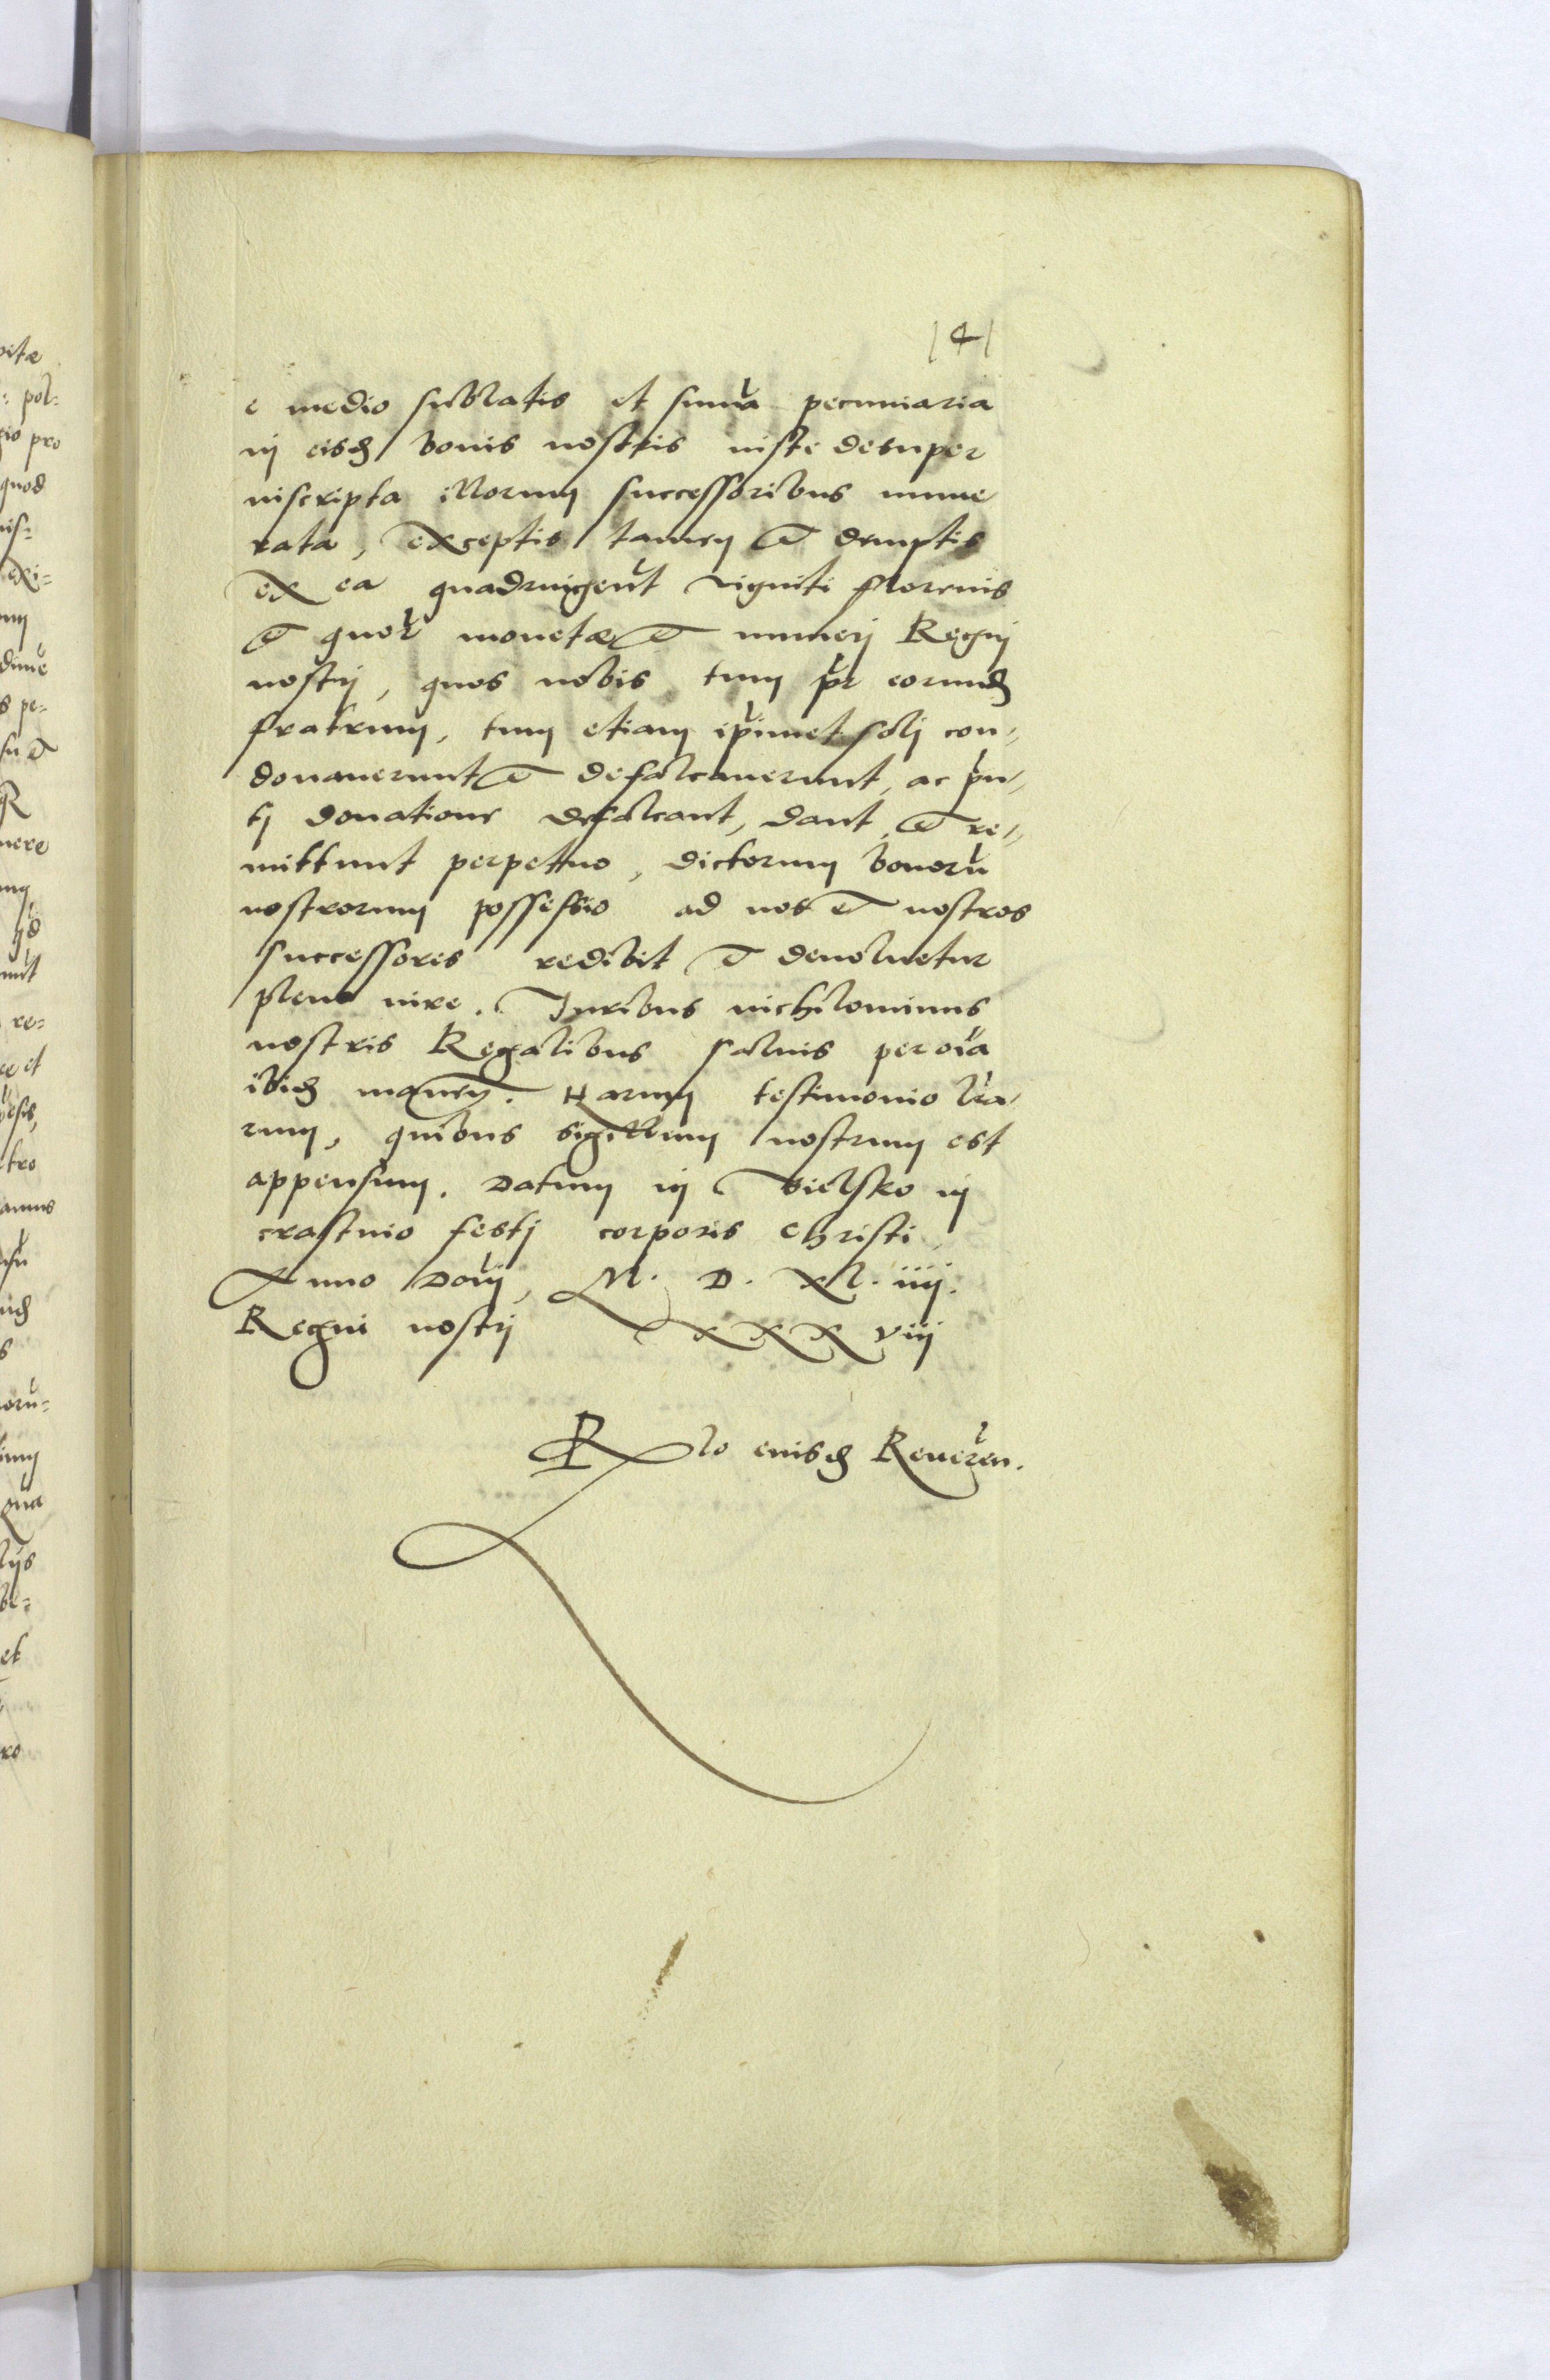 141
e medio sublatis et sum̃a pecuniaria
in eisdẽ bonis nostris iuste desuper
inscripta illorum successoribus nume
rata, exceptis tamen et demptis
ex ea quadringent̃ viginti florenis
et quor̃ monetæ et numeri Regni
nostri, quos nobis tum pr̃ eorundẽ
fratrum, tum etiam ip̃imet soli con-
donauerunt et defalcauerunt, ac p̃n-
ti donatione defalcant, dant, et re-
mittunt perpetuo, dictorum bonorũ
nostrorum possessio ad nos et nostros
successores redibit et deuoluetur
pleno iure. Iuribus nichilominus
nostris Regalibus saluis per oĩa
ibidẽ manen̄. Harum testimonio l̃ra-
rum, quibus sigillum nostrum est
appensum. Datum in Bielsko in
crastino festi corporis Christi
Anno Dom̃i, M. D. XL. iiij.
Regni nostri XXX viij
Rl̃o eiusdẽ Reueren.
petæ
pol:
gio pro
quod
exi=
dime
pe=
nere
re=
et
tro
amus
orũ=
be=
et